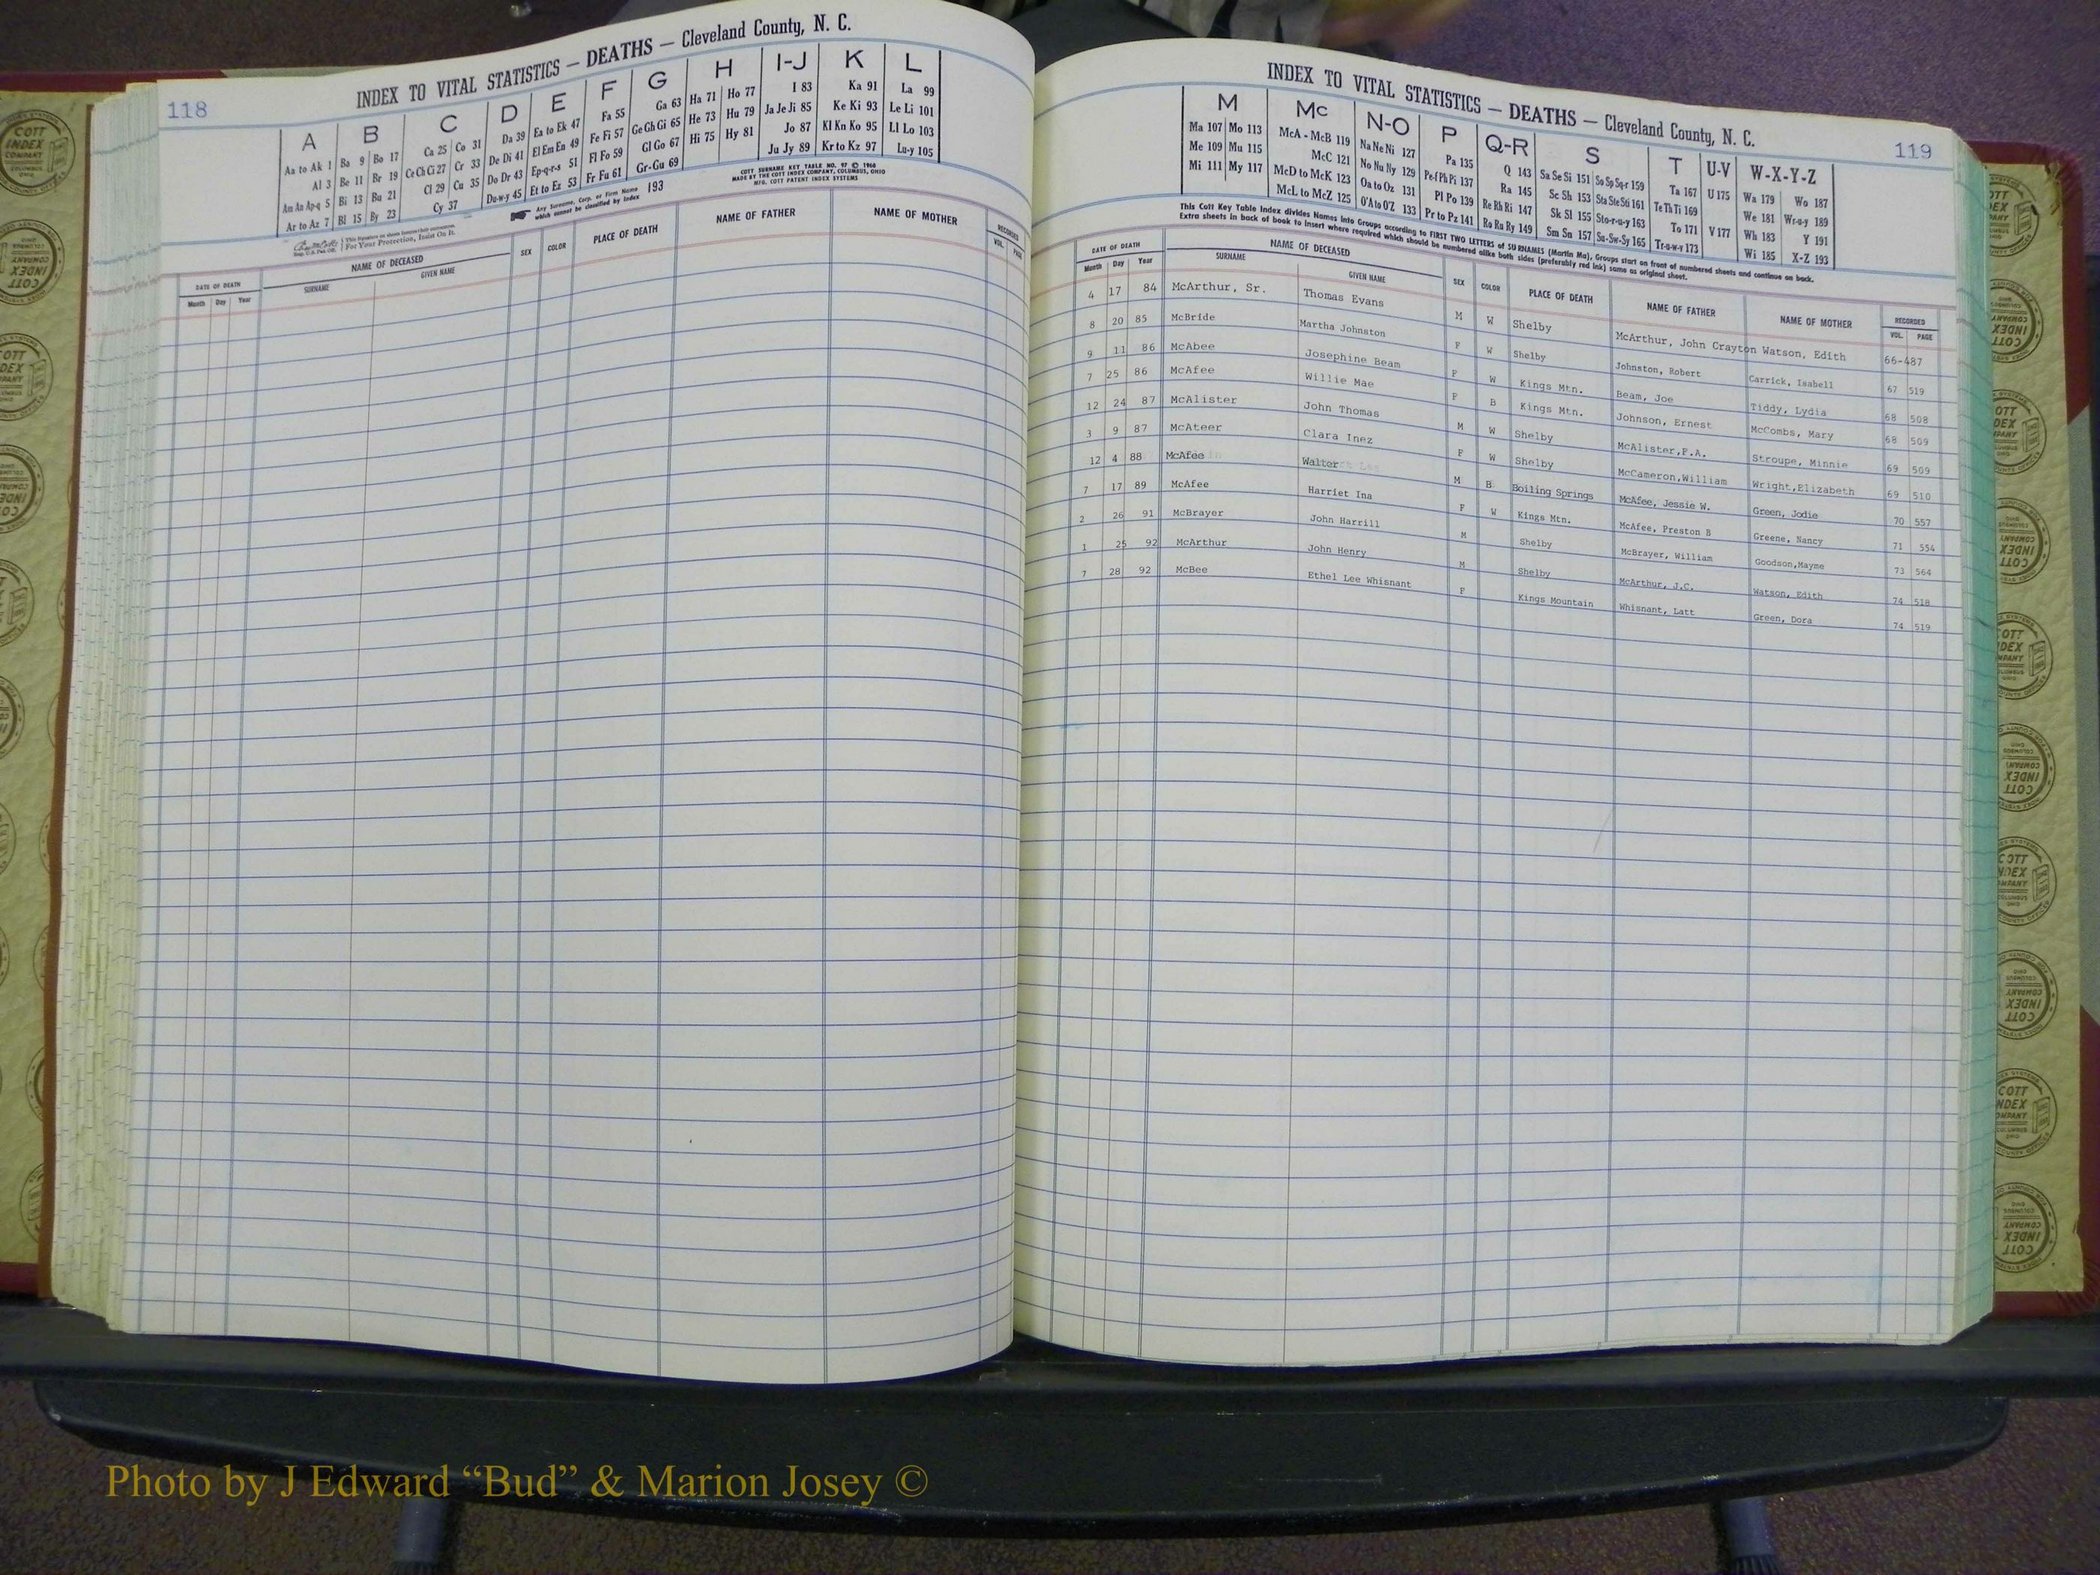 118
INDEX TO VITAL STATISTICS — DEATHS — Cleveland County, N. C.
A B C D E F G H I-J K L
Aa to Ak 1 Ba 9 Bo 17 Ca 25 Co 31 Da 39 Ea to Ek 47 Fa 55 Ga 63 Ha 71 Ho 77 I 83 Ka 91 La 99
Al 3 Be 11 Br 19 Ce Ch Ci 27 Cr 33 De Di 41 El Em En 49 Fe Fi 57 Ge Gh Gi 65 He 73 Hu 79 Ja Je Ji 85 Ke Ki 93 Le Li 101
Am An Ap-q 5 Bi 13 Bu 21 Cl 29 Cu 35 Do Dr 43 Ep-q-r-s 51 Fl Fo 59 Gl Go 67 Hi 75 Hy 81 Jo 87 Kl Kn Ko 95 Ll Lo 103
Ar to Az 7 Bl 15 By 23 Cy 37 Du-w-y 45 Et to Ez 53 Fr Fu 61 Gr-Gu 69 Ju Jy 89 Kr to Kz 97 Lu-y 105
Any Surname, Corp. or Firm Name which cannot be classified by Index 193
COTT SURNAME KEY TABLE NO. 97 © 1960
MADE BY THE COTT INDEX COMPANY, COLUMBUS, OHIO
MFG. COTT PATENT INDEX SYSTEMS
For Your Protection, Insist On It.
DATE OF DEATH NAME OF DECEASED SEX COLOR PLACE OF DEATH NAME OF FATHER NAME OF MOTHER RECORDED
Month Day Year SURNAME GIVEN NAME VOL. PAGE
INDEX TO VITAL STATISTICS — DEATHS — Cleveland County, N. C.
119
M Mc N-O P Q-R S T U-V W-X-Y-Z
Ma 107 Mo 113 McA - McB 119 Na Ne Ni 127 Pa 135 Q 143 Sa Se Si 151 So Sp Sq-r 159 Ta 167 U 175 Wa 179 Wo 187
Me 109 Mu 115 McC 121 No Nu Ny 129 Pe-f Ph Pi 137 Ra 145 Sc Sh 153 Sta Ste Sti 161 Te Th Ti 169 We 181 Wr-u-y 189
Mi 111 My 117 McD to McK 123 Oa to Oz 131 Pl Po 139 Re Rh Ri 147 Sk Sl 155 Sto-r-u-y 163 To 171 V 177 Wh 183 Y 191
McL to McZ 125 O'A to O'Z 133 Pr to Pz 141 Ro Ru Ry 149 Sm Sn 157 Su-Sw-Sy 165 Tr-u-w-y 173 Wi 185 X-Z 193
This Cott Key Table Index divides Names into Groups according to FIRST TWO LETTERS of SURNAMES (Martin Ma), Groups start on front of numbered sheets and continue on back.
Extra sheets in back of book to insert where required which should be numbered alike both sides (preferably red ink) same as original sheet.
DATE OF DEATH NAME OF DECEASED SEX COLOR PLACE OF DEATH NAME OF FATHER NAME OF MOTHER RECORDED
Month Day Year SURNAME GIVEN NAME VOL. PAGE
4 17 84 McArthur, Sr. Thomas Evans M W Shelby McArthur, John Crayton Watson, Edith 66-487
8 20 85 McBride Martha Johnston F W Shelby Johnston, Robert Carrick, Isabell 67 519
9 11 86 McAbee Josephine Beam F W Kings Mtn. Beam, Joe Tiddy, Lydia 68 508
7 25 86 McAfee Willie Mae F B Kings Mtn. Johnson, Ernest McCombs, Mary 68 509
12 24 87 McAlister John Thomas M W Shelby McAlister, P.A. Stroupe, Minnie 69 509
3 9 87 McAteer Clara Inez F W Shelby McCameron,William Wright,Elizabeth 69 510
12 4 88 McAfee Walter M B Boiling Springs McAfee, Jessie W. Green, Jodie 70 557
7 17 89 McAfee Harriet Ina F W Kings Mtn. McAfee, Preston B Greene, Nancy 71 554
2 26 91 McBrayer John Harrill M Shelby McBrayer, William Goodson,Mayme 73 564
1 25 92 McArthur John Henry M Shelby McArthur, J.C. Watson, Edith 74 518
7 28 92 McBee Ethel Lee Whisnant F Kings Mountain Whisnant, Latt Green, Dora 74 519
Photo by J Edward “Bud” & Marion Josey ©